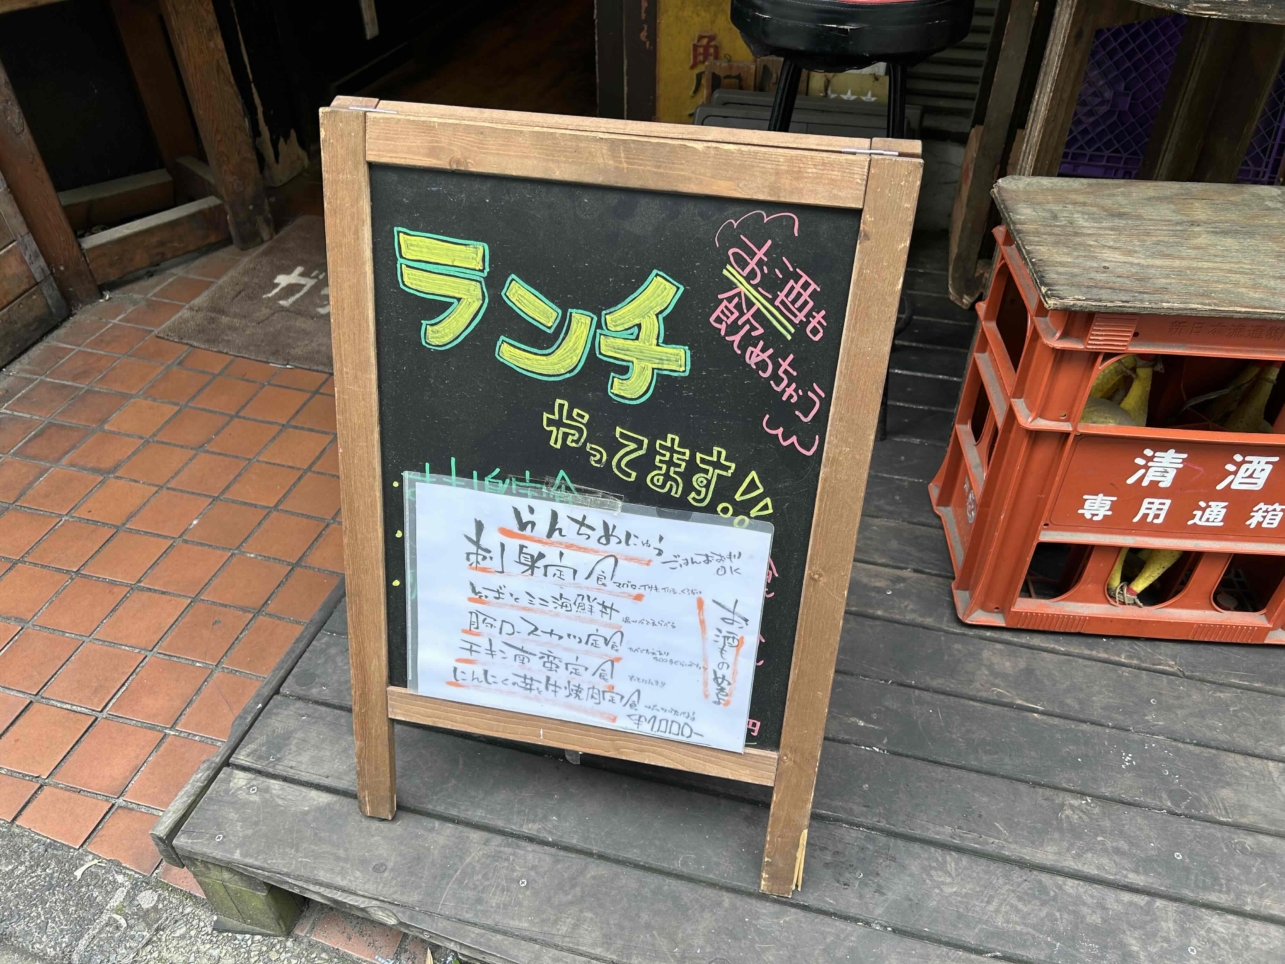 ランチ
やってます!!
お酒も
飲めちゃう
らんちめにゅう
ごはんおおもり
OK
刺身定食
ミニ海鮮丼
豚ロースカツ定食
チキン南蛮定食
にんにくの芽と牛焼肉定食
¥1,000-
お酒ものめます
円
清酒
専用通箱
ガ
角